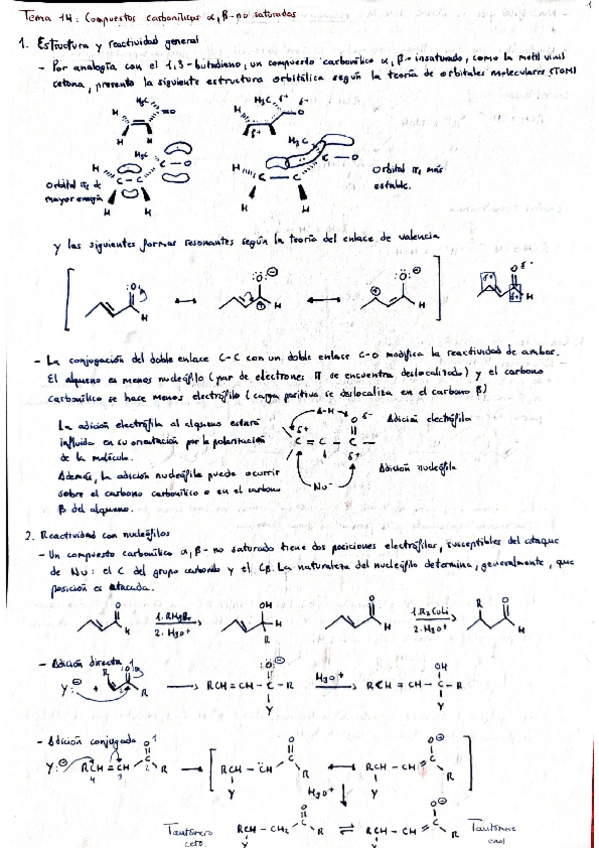 Tema 14: Compuestos carbonílicos α,β-no saturados
1
1. Estructura y reactividad general
- Por analogía con el 1,3-butadieno, un compuesto carbonílico α,β-insaturado, como la metil vinil
cetona, presenta la siguiente estructura orbitálica según la teoría de orbitales moleculares (TOM)
Orbital π1 de
mayor energía
Orbital π1 más
estable.
y las siguientes formas resonantes según la teoría del enlace de valencia
- La conjugación del doble enlace C-C con un doble enlace C-O modifica la reactividad de ambos.
El alqueno es menos nucleófilo (par de electrones π se encuentra deslocalizado) y el carbono
carbonílico se hace menos electrófilo (carga positiva se deslocaliza en el carbono β)
La adición electrófila al alqueno estará
influida en su orientación por la polarización
de la molécula.
Además, la adición nucleófila puede ocurrir
sobre el carbono carbonílico o en el carbono
β del alqueno.
δ-H
O δ-
Adición electrófila
δ+
C = C - C -
δ+
Nu-
Adición nucleófila
2. Reactividad con nucleófilos
- Un compuesto carbonílico α,β-no saturado tiene dos posiciones electrófilas, susceptibles del ataque
de Nu: el C del grupo carbonilo y el Cβ. La naturaleza del nucleófilo determina, generalmente, que
posición es atacada.
1. RMgBr
2. H3O+
OH
R
1. R2CuLi
2. H3O+
R
O
H
- Adición directa
Y:⊖ +
R
RCH=CH-C-R
Y
H3O+
OH
RCH=CH-C-R
Y
- Adición conjugada
Y:⊖
RCH=CH-C
R
RCH-CH-C
Y
R
RCH-CH=C
Y
R
H3O+
Tautómero
ceto.
RCH-CH2-C
R
Y
⇌
RCH-CH=C
R
Y
Tautómero
enol